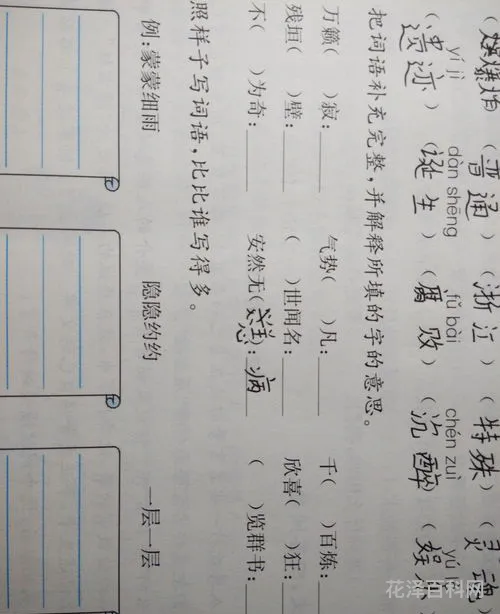 (爆炸) (普通) (浙江) (特殊) (灵魂
yí jì dàn shēng fǔ bài chén zuì yú
(遗迹) (诞生) (腐败) (沉醉) (娱
把词语补充完整,并解释所填的字的意思。
万籁( )寂:____ 气势( )凡:____ 千( )百炼:____
残垣( )壁:____ ( )世闻名:____ 欣喜( )狂:____
不( )为奇:____ 安然无(恙):病 ( )览群书:____
照样子写词语,比比谁写得多。
例:蒙蒙细雨 隐隐约约 一层一层
花泽百科网